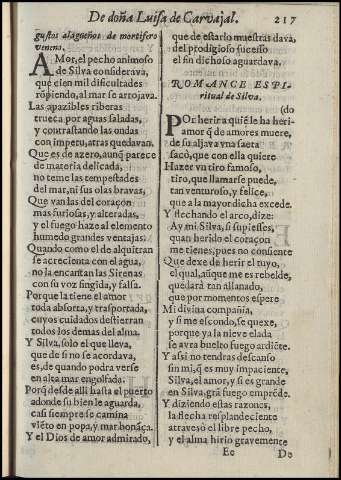 De doña Luisa de Carvajal. 217
gustos alagueños de mortifero
veneno.
AMor, el pecho animoso
de Silva considerava,
que cien mil dificultades
rōpiendo, al mar se arrojava.
Las apazibles riberas
trueca por aguas saladas,
y contrastando las ondas
con impetu, atras quedavan.
Que es de azero, aunq̄ parece
de materia delicada,
no teme las tempestades
del mar, ni sus olas bravas,
Que van las del coraçon
mas furiosas, y alteradas,
y el fuego haze al elemento
humedo grandes ventajas:
Quando como el de alquitran
se acrecienta con el agua,
no la encantan las Sirenas
con su voz singida, y falsa.
Porque la tiene el amor
toda absorta, y trasportada,
cuyos cuidados destierran
todos los demas del alma.
Y Silva, solo el que lleva,
que de si no se acordava,
es, de quando podra verse
en alta mar engolfada.
Porq̄ desde alli hasta el puerto
adonde su bien le aguarda,
casi siempre se camina
viēto en popa, y mar bonāça.
Y el Dios de amor admirado,
que de estarlo muestras dava,
del prodigioso sucesso
el fin dichoso aguardava.
ROMANCE ESPI-
ritual de Silva.
(do
POr herir a quiē le ha heri-
amor q̄ de amores muere,
de su aljava vna saeta
sacò, que con ella quiere
Hazer vn tiro famoso,
tiro, que llamarse puede,
tan venturoso, y felice,
que a la mayor dicha excede.
Y flechando el arco, dize:
Ay mi Silva, si supiesses,
quan herido el coraçon
me tienes, pues no consiente
Que dexe de herir el tuyo,
el qual, aũque me es rebelde,
quedarà tan allanado,
que por momentos espere
Mi divina compañia,
y si me escondo, se quexe,
porque ya la nieve elada
se avra buelto fuego ardiēte.
Y assi no tendras descanso
sin mi, q̄ es muy impaciente,
Silva, el amor, y si es grande
en Silva, grā fuego emprēde.
Y diziendo estas razones,
la flecha resplandeciente
atravesò el libre pecho,
y el alma hirio gravemente
Ee De